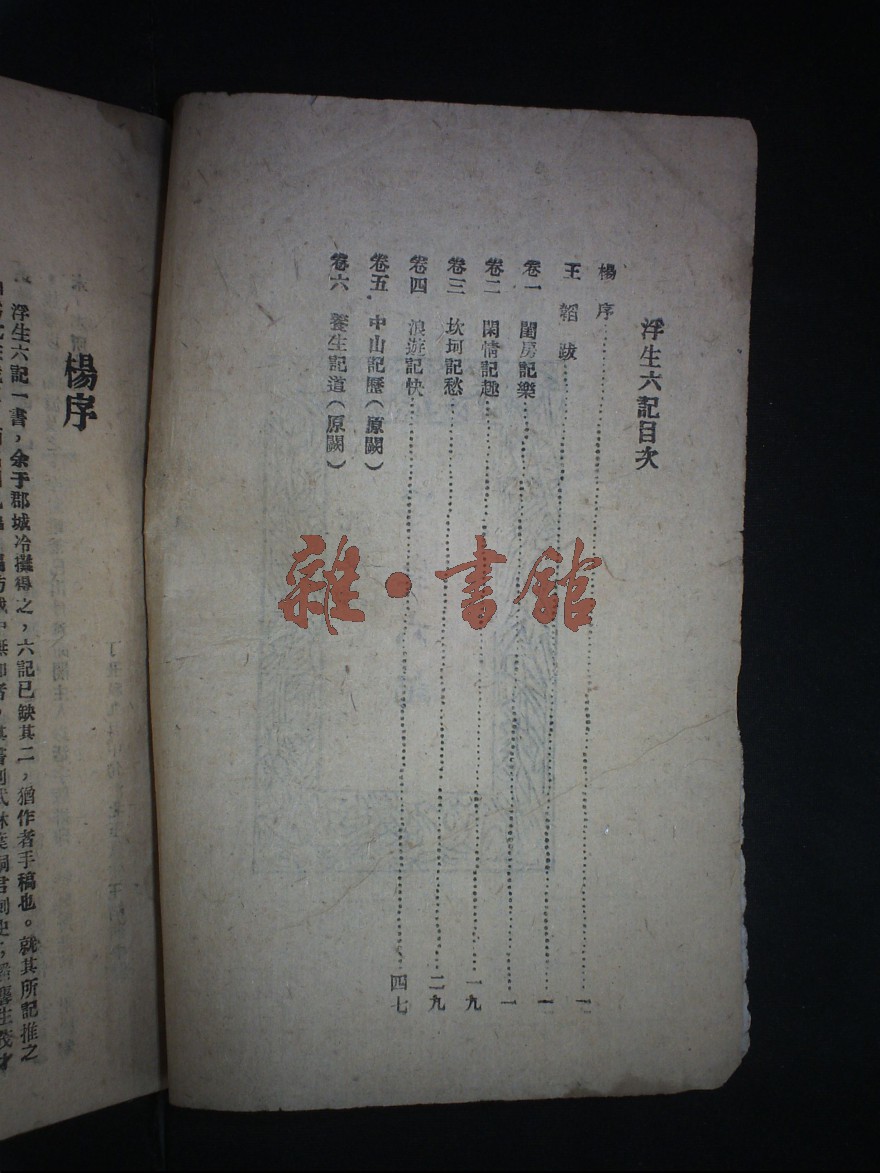 浮生六記目次
楊序
王韜跋
卷一 閨房記樂 一
卷二 閑情記趣 一九
卷三 坎坷記愁 二九
卷四 浪遊記快 四七
卷五 中山記歷(原闕)
卷六 養生記道(原闕)
楊序
浮生六記一書,余于郡城冷攤得之,六記已缺其二,猶作者手稿也。就其所記推之
雜·書館